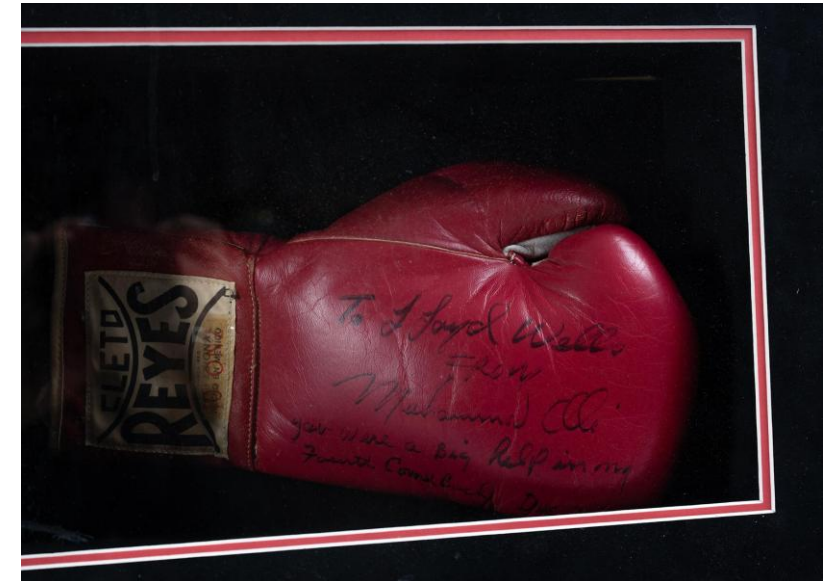 CLETO
REYES
To Lloyd Wells
From
Muhammad Ali
you were a Big help in my
Fourth Come Back